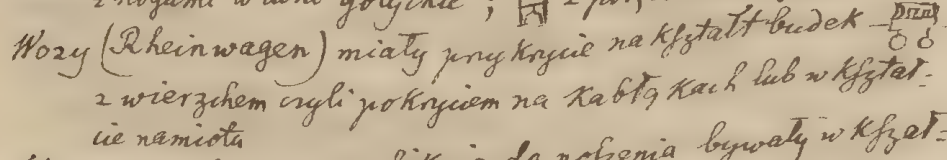 z nogami w
Wozy (Rheinwagen) miały przykrycie na kształt budek –
z wierzchem czyli pokryciem na kabłąkach lub w kształ-
cie namiotu
do noszenia bywały w kształ=